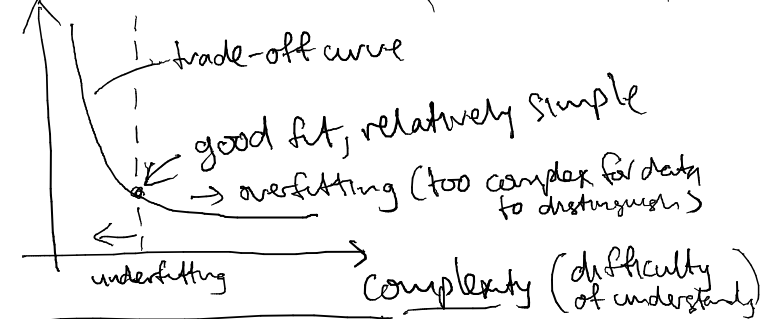 trade-off curve
good fit, relatively simple
→ overfitting (too complex for data
to distinguish)
←
underfitting
complexity (difficulty
of understanding)